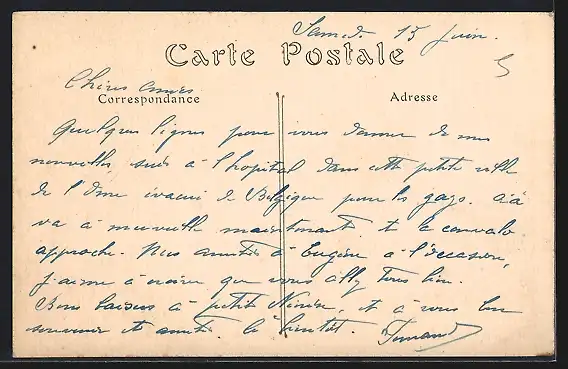 Samedi 15 juin.
Carte Postale
Chères amies
Correspondance
Adresse
Quelques lignes pour vous donner de mes
nouvelles, suis à l'hopital dans cette petite ville
de l'Orne évacué de Belgique pour les gaz. Ça
va à merveille maintenant et la convalo
approche. Mes amitiés à Eugène à l'occasion,
j'aime à croire que vous allez tous bien.
Bons baisers à petite, et à vous bon
souvenir et amitié. à bientôt. Fernand